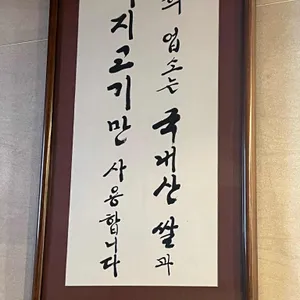 업소는 국내산 쌀과
지고기만 사용합니다